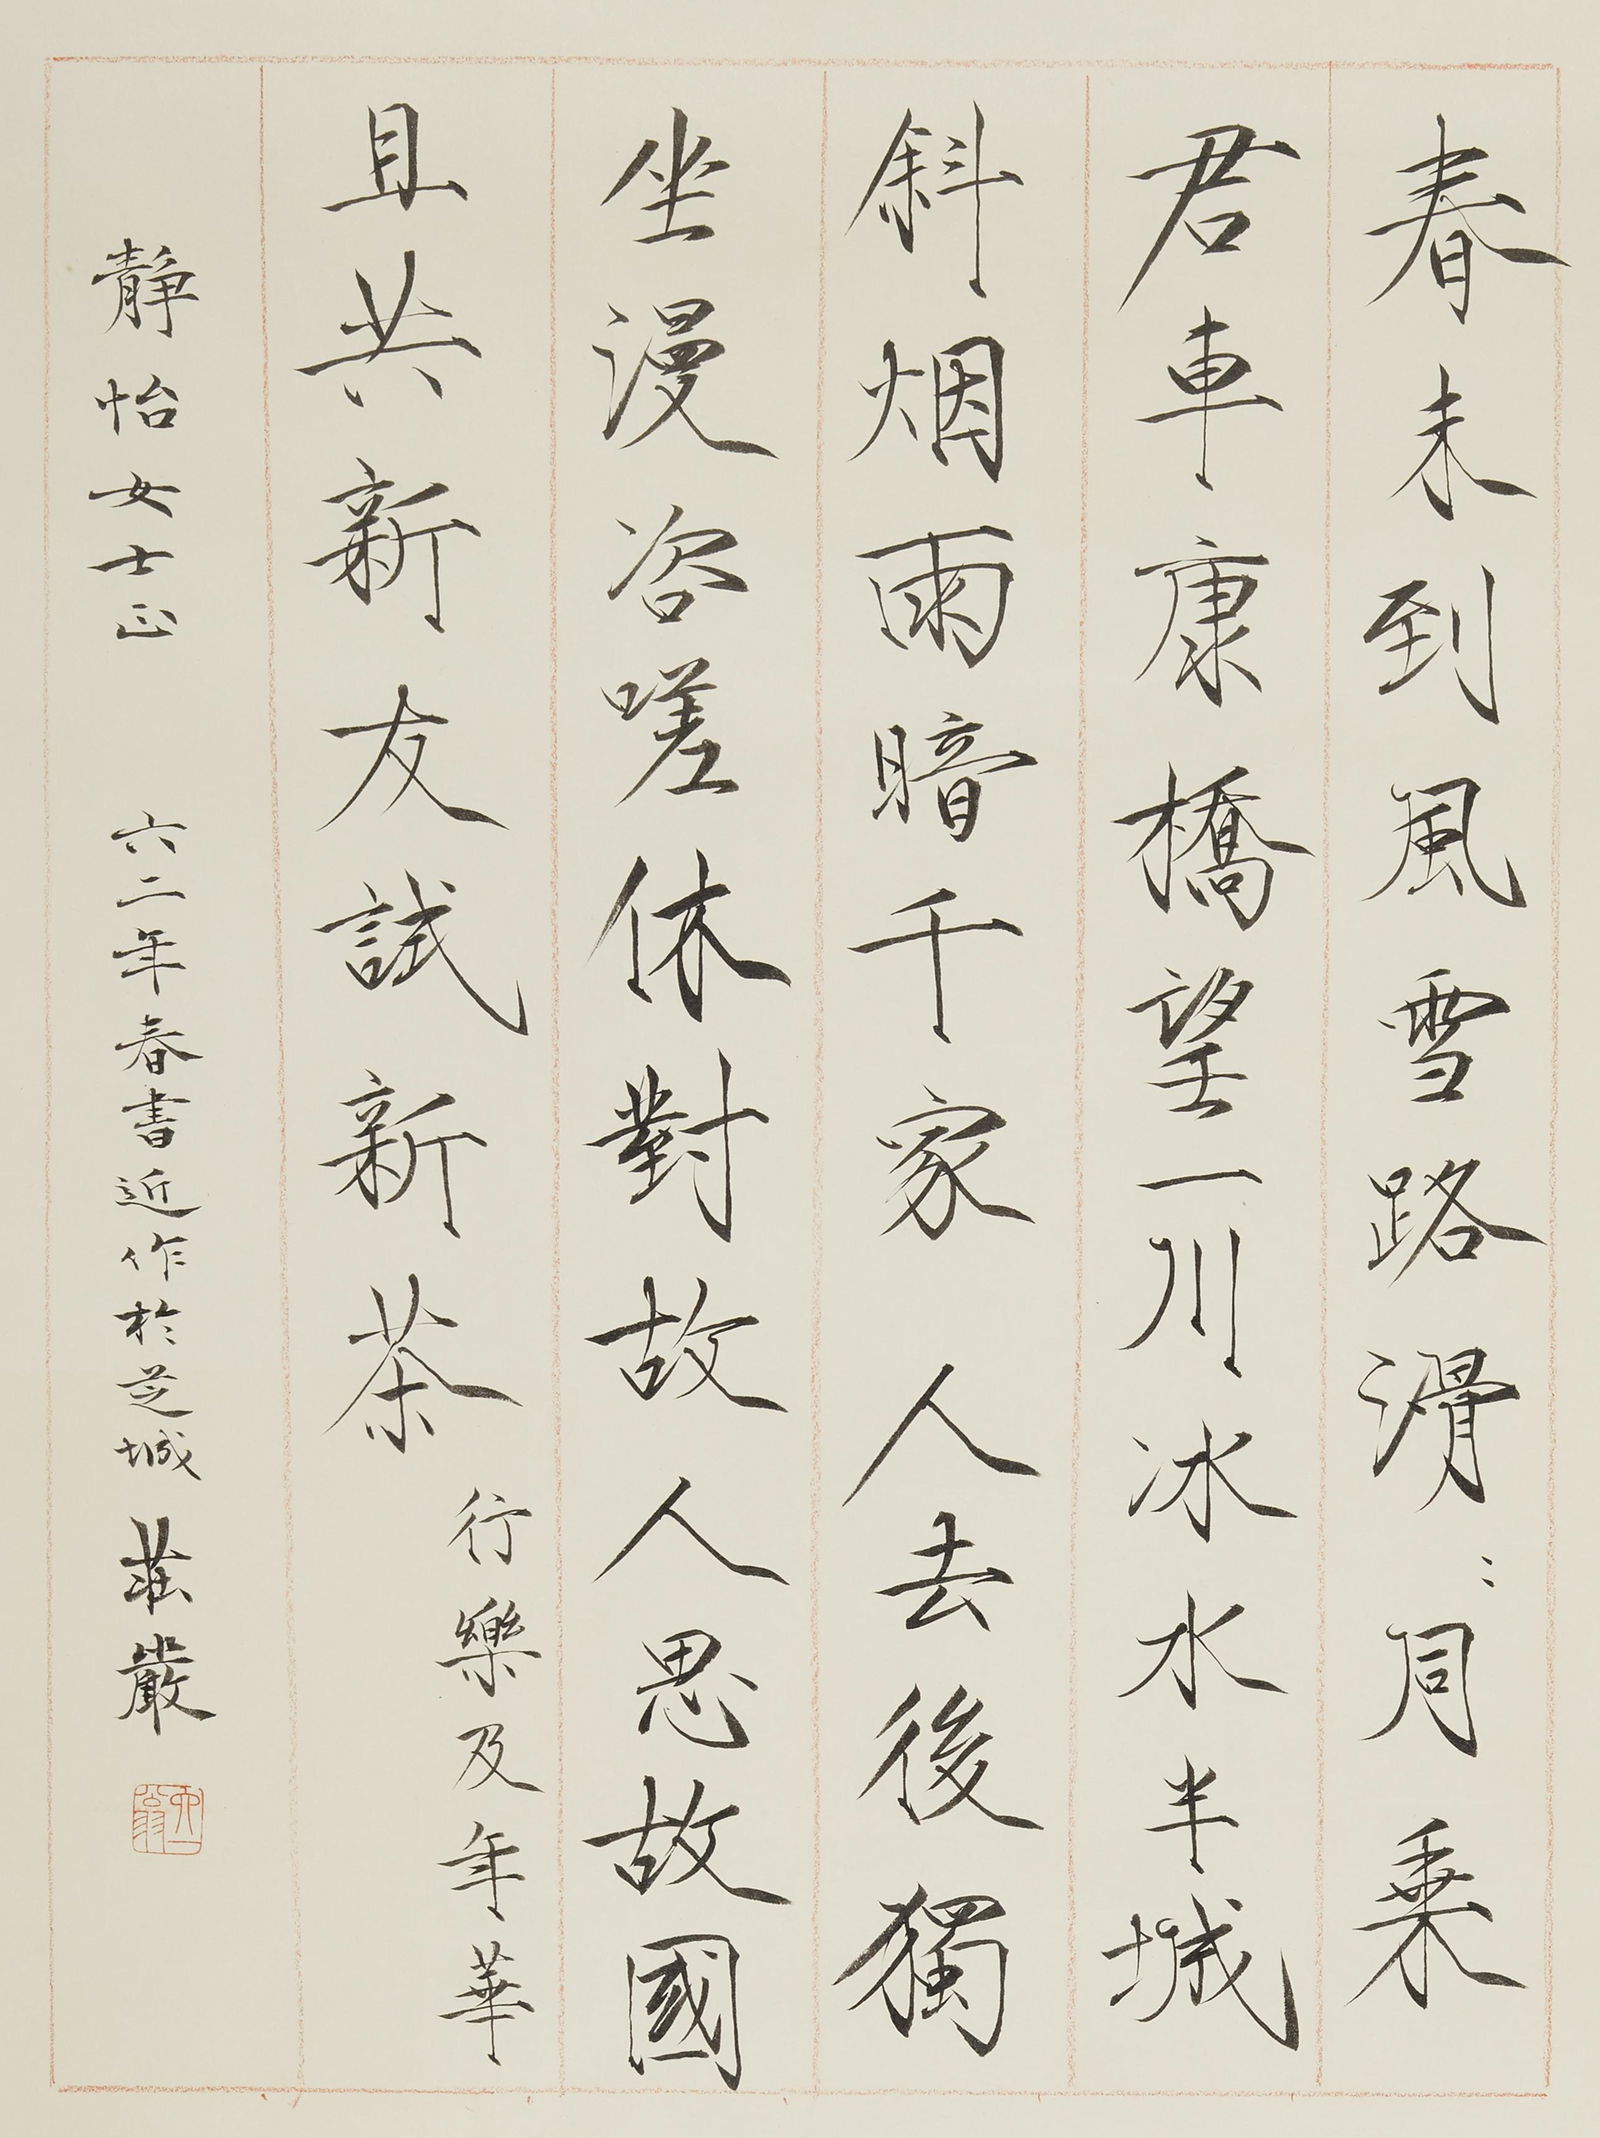 春未到風雪路滑〻同乘
君車康橋望一川冰水半城
斜烟雨暗千家人去後獨
坐漫咨嗟休對故人思故國
且共新友試新茶
行樂及年華
靜怡女士正 六二年春書近作於芝城 莊嚴
六一翁